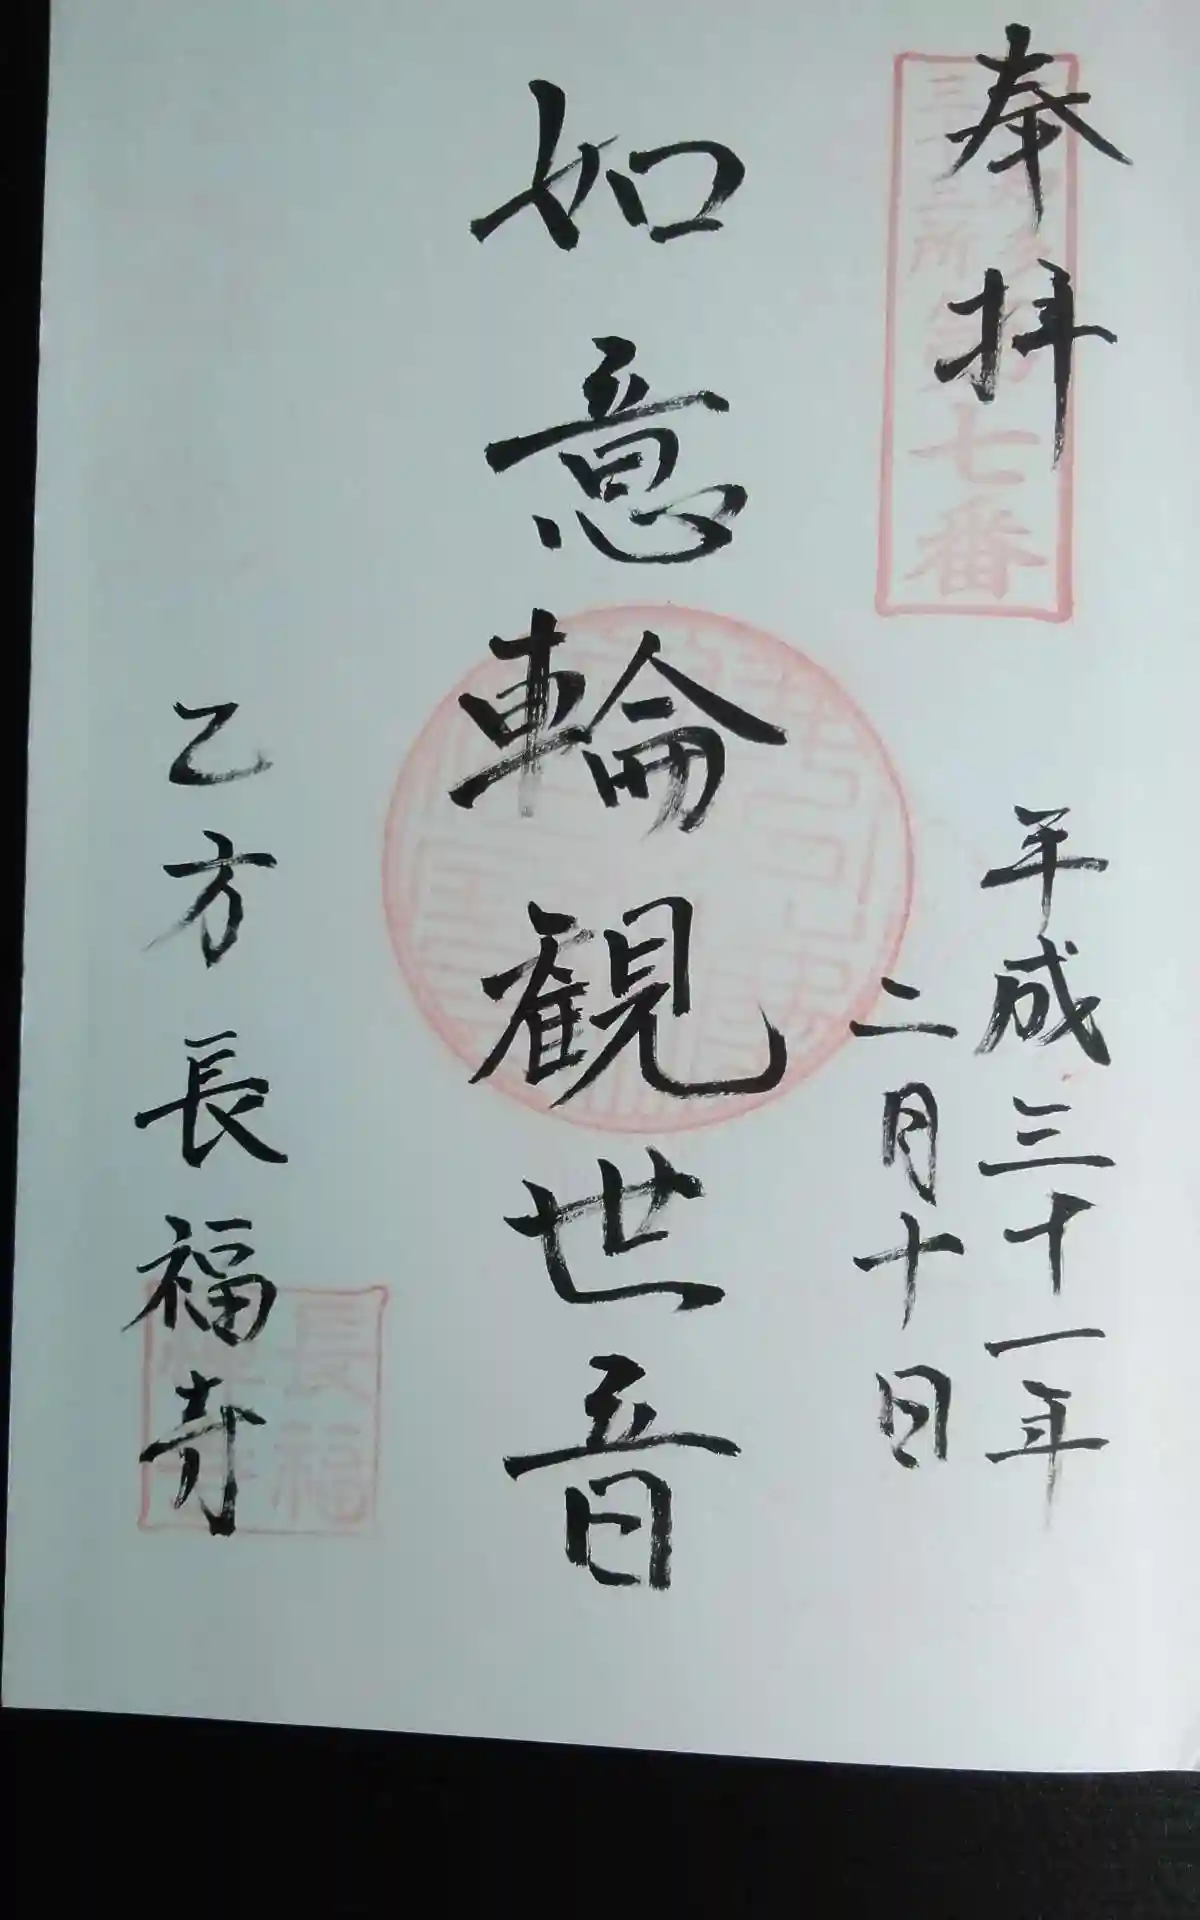 奉拝
七番
平成三十一年
二月十日
如意輪観世音
乙方長福寺
長福